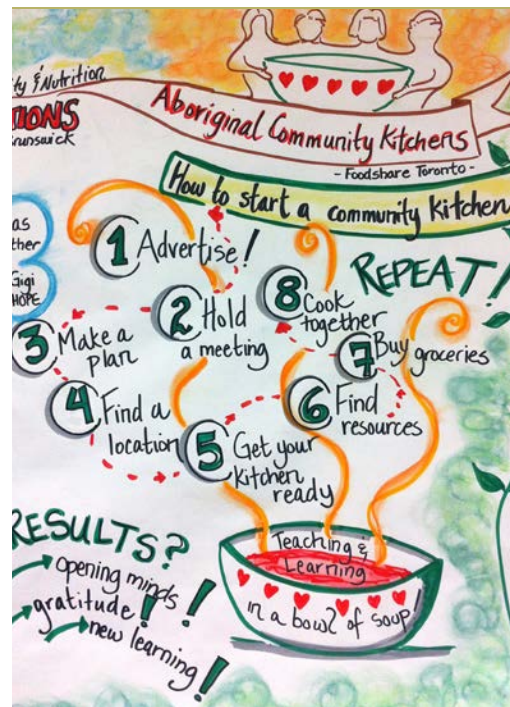 ity & Nutrition
TIONS
runswick
Aboriginal Community Kitchens
- Foodshare Toronto -
How to start a community kitchen
as
ther
Gigi
HOPE
1 Advertise!
2 Hold
a meeting
3 Make a
plan
4 Find a
location
5 Get your
kitchen
ready
6 Find
resources
7 Buy groceries
8 Cook
together
REPEAT!
RESULTS?
opening minds!
gratitude!
new learning!
Teaching &
Learning
in a bowl of soup!